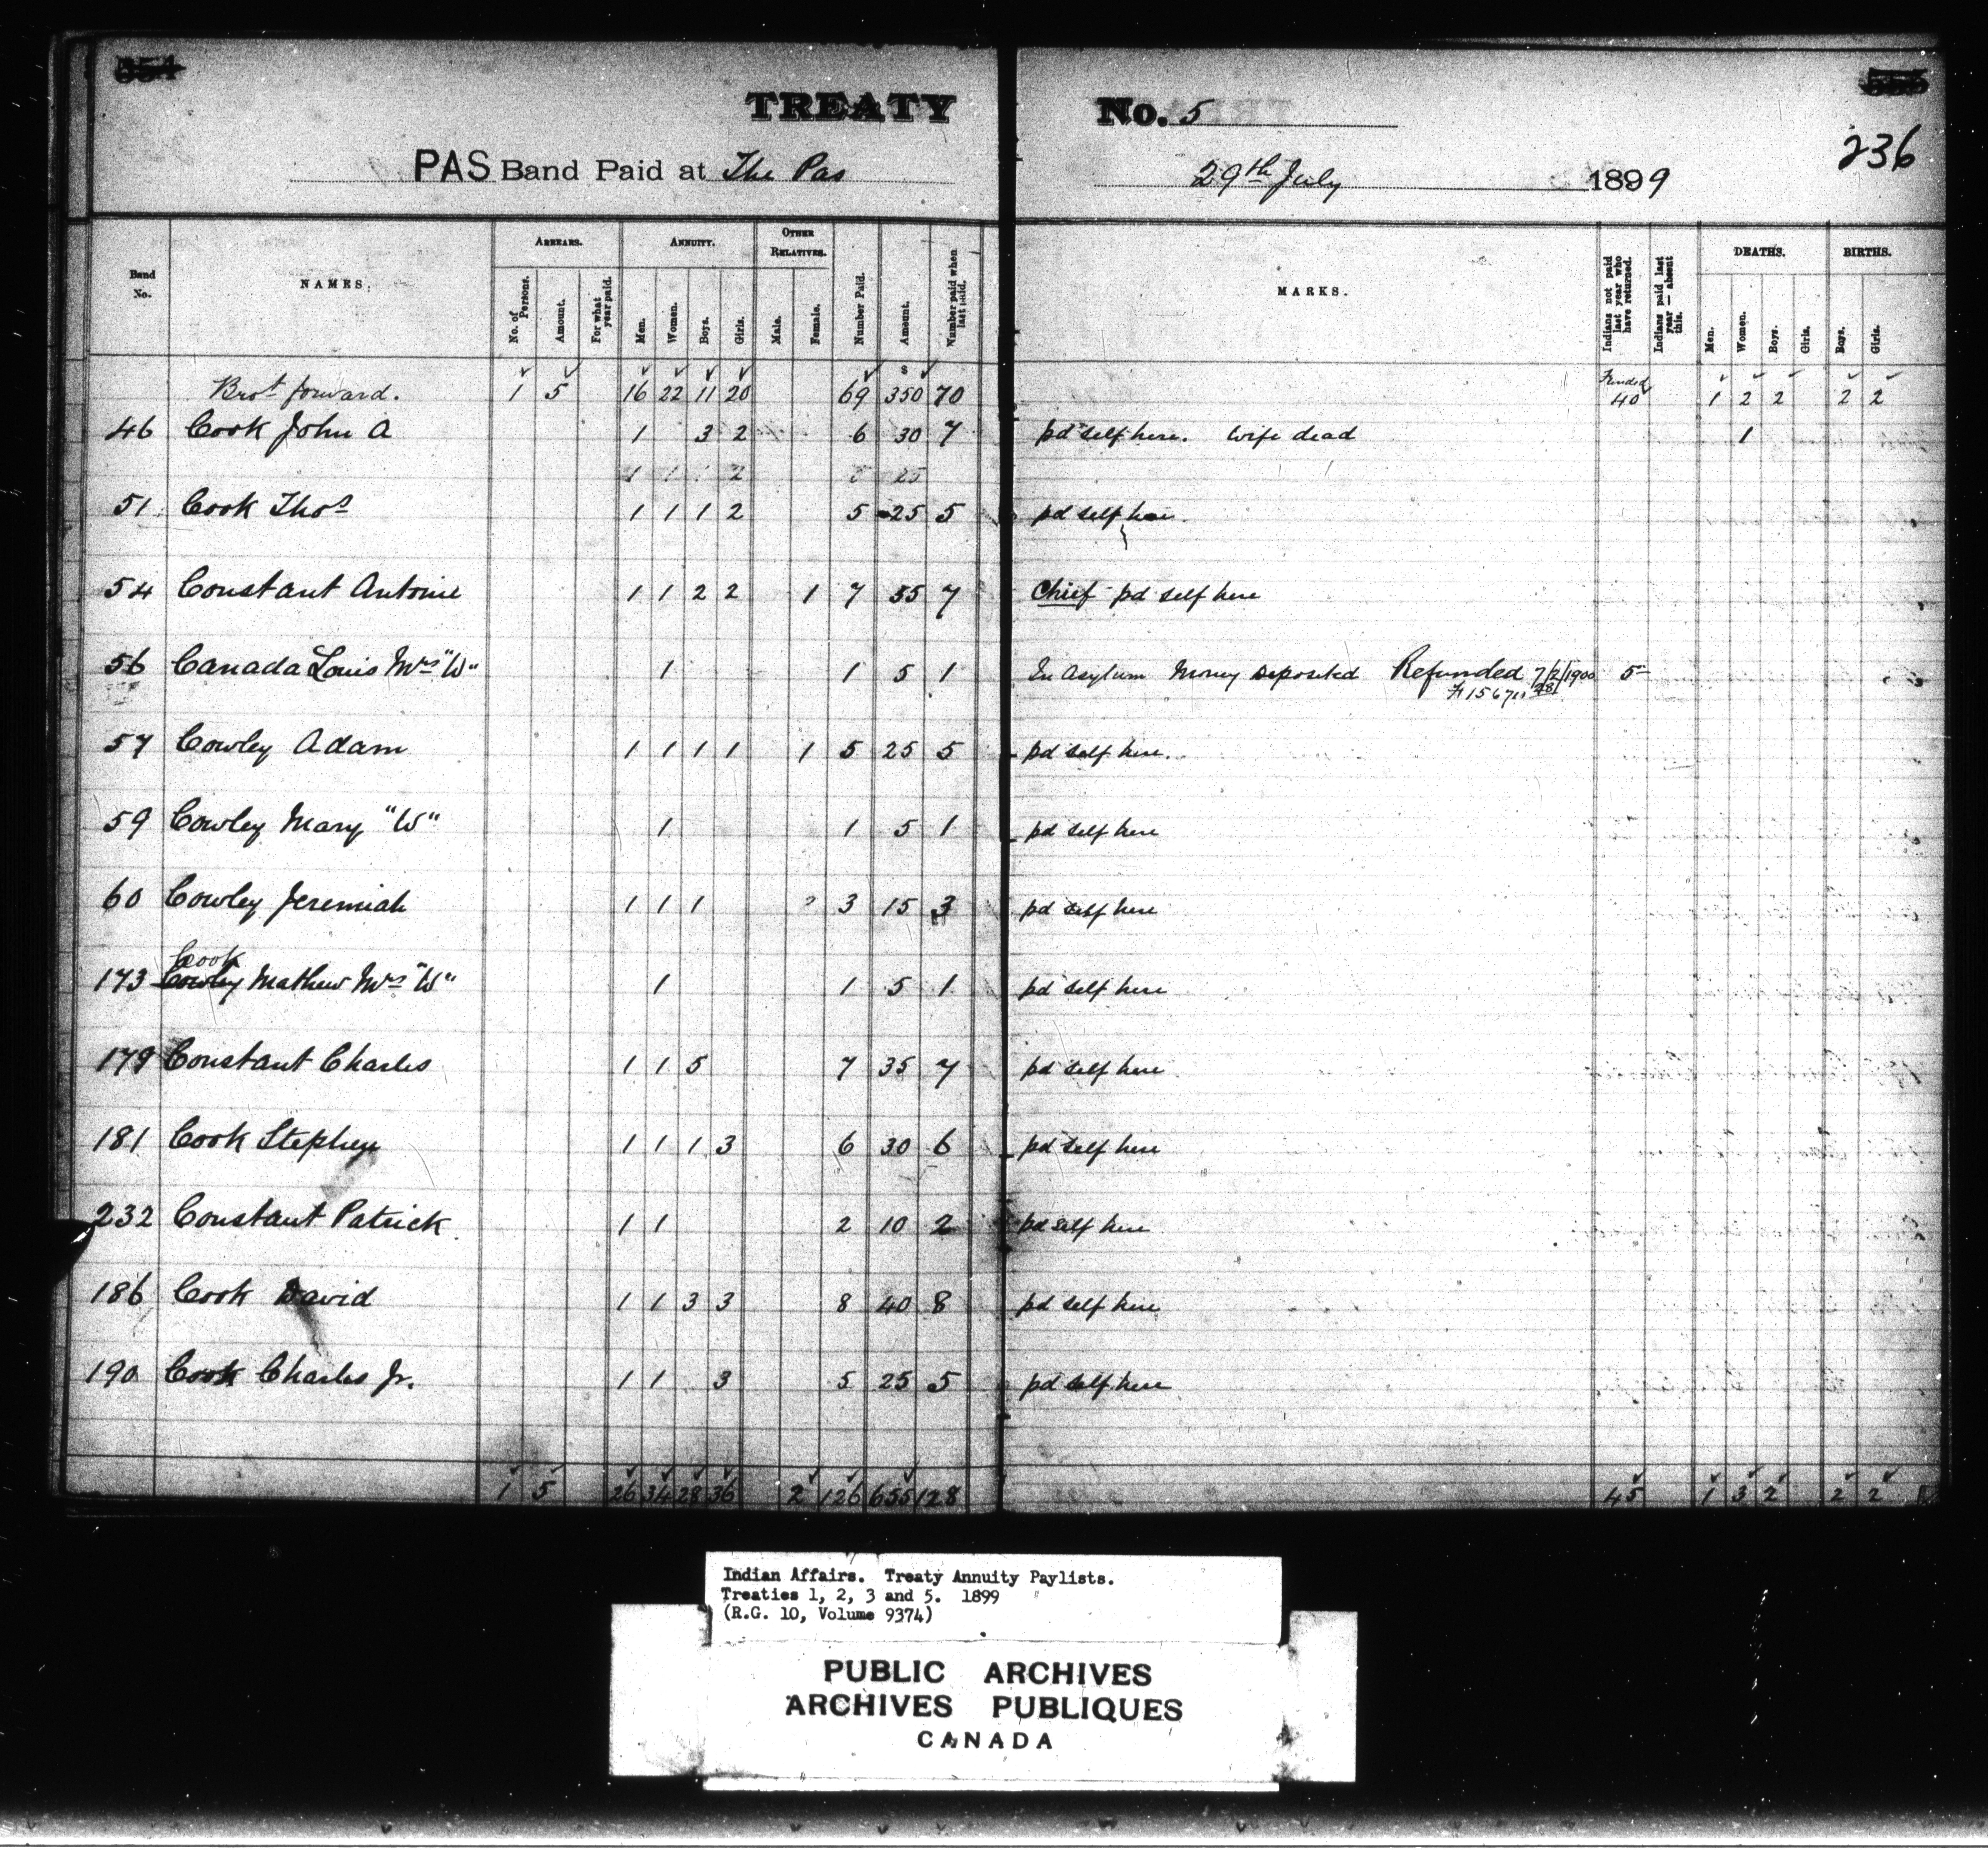 TREATY No. 5
236
PAS Band Paid at The Pas 29th July 1899
Band No. NAMES. ARREARS. ANNUITY. OTHER RELATIVES. Number Paid. Amount. Number paid when last paid. MARKS. Indians not paid last year who have returned. Indians paid last year — absent this. DEATHS. BIRTHS.
No. of Persons. Amount. For what year paid. Men. Women. Boys. Girls. Male. Female. Men. Women. Boys. Girls. Boys. Girls.
Brot forward. 1 5 16 22 11 20 69 $ 350 70 Funded 40 1 2 2 2 2
46 Cook John A 1 3 2 6 30 7 pd self here. Wife dead 1
1 1 1 2 5 25
51 Cook Thos 1 1 1 2 5 25 5 pd self here.
54 Constant Antoine 1 1 2 2 1 7 35 7 Chief pd self here
56 Canada Louis Mrs "W" 1 1 5 1 In Asylum Money Deposited Refunded 7/2/1900 5
57 Cowley Adam 1 1 1 1 1 5 25 5 pd self here.
59 Cowley Mary "W" 1 1 5 1 pd self here
60 Cowley Jeremiah 1 1 1 3 15 3 pd self here
Cook
173 Cowley Mathew Mrs "W" 1 1 5 1 pd self here
179 Constant Charles 1 1 5 7 35 7 pd self here
181 Cook Stephen 1 1 1 3 6 30 6 pd self here
232 Constant Patrick 1 1 2 10 2 pd self here
186 Cook David 1 1 3 3 8 40 8 pd self here
190 Cook Charles Jr. 1 1 3 5 25 5 pd self here
1 5 26 34 28 36 2 126 655 128 45 1 3 2 2 2
Indian Affairs. Treaty Annuity Paylists.
Treaties 1, 2, 3 and 5. 1899
(R.G. 10, Volume 9374)
PUBLIC ARCHIVES
ARCHIVES PUBLIQUES
CANADA